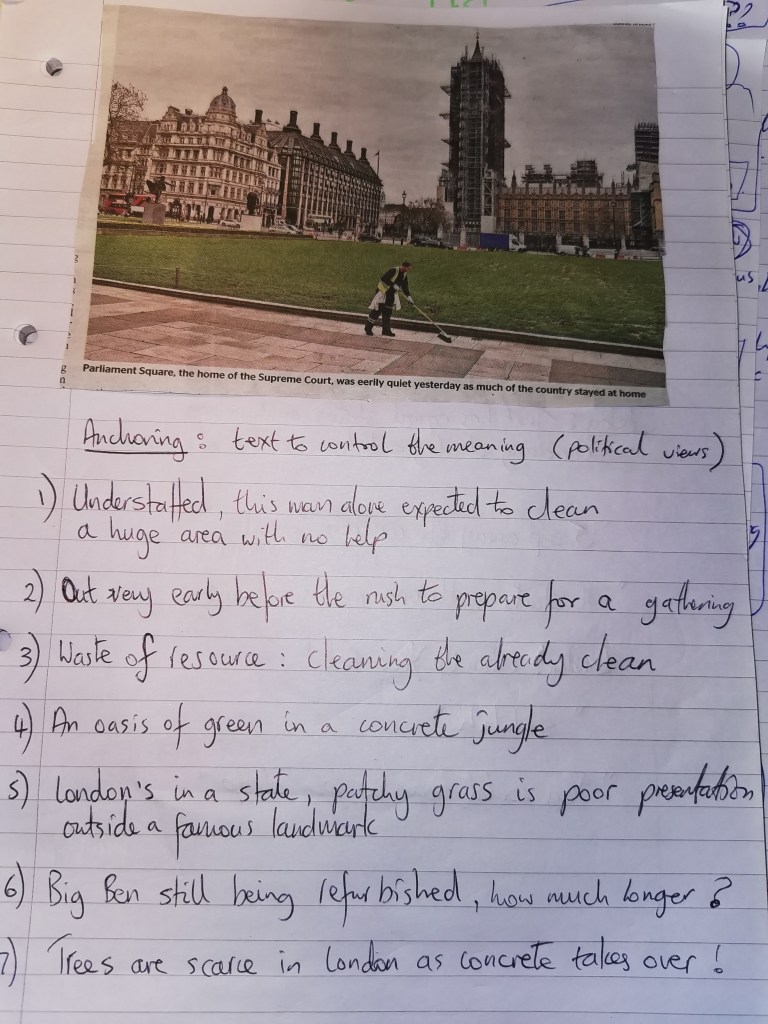 Parliament Square, the home of the Supreme Court, was eerily quiet yesterday as much of the country stayed at home
Anchoring : text to control the meaning (political views)
1) Understaffed, this man alone expected to clean
a huge area with no help
2) Out very early before the rush to prepare for a gathering
3) Waste of resource : cleaning the already clean
4) An oasis of green in a concrete jungle
5) London's in a state, patchy grass is poor presentation
outside a famous landmark
6) Big Ben still being refurbished, how much longer ?
7) Trees are scarce in London as concrete takes over !